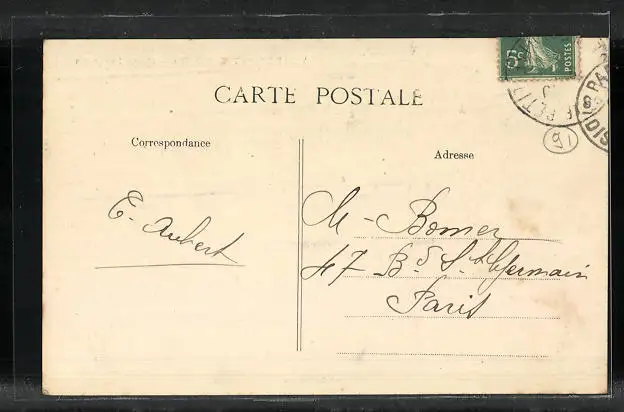 5c POSTES
CARTE POSTALE
Correspondance
Adresse
E. Aubert
M - Bomer
47 Bd St Germain
Paris